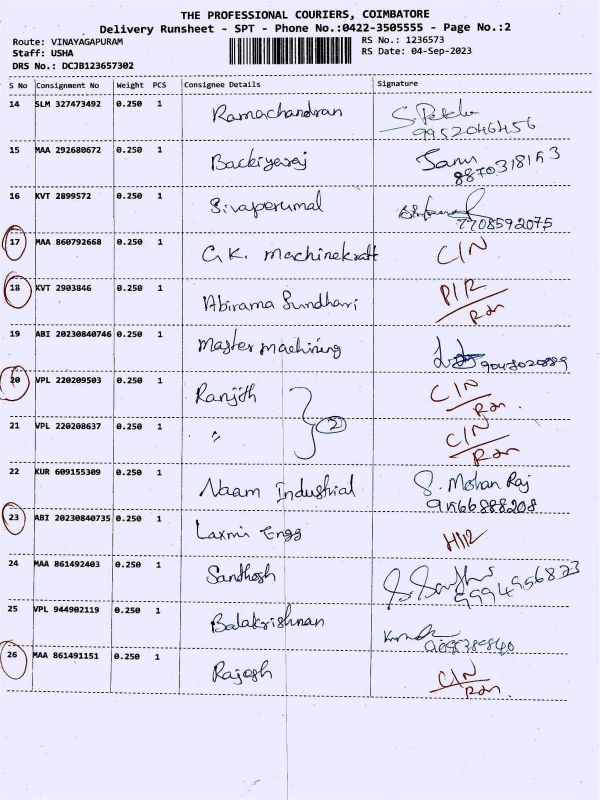 THE PROFESSIONAL COURIERS, COIMBATORE
Delivery Runsheet - SPT - Phone No.:0422-3505555 - Page No.:2
Route: VINAYAGAPURAM RS No.: 1236573
Staff: USHA RS Date: 04-Sep-2023
DRS No.: DCJB123657302
S No Consignment No Weight PCS Consignee Details Signature
14 SLM 327473492 0.250 1 Ramachandran
9952046456
15 MAA 292680672 0.250 1 Backiyaraj
16 KVT 2899572 0.250 1 Sivaperumal
7708592075
17 MAA 860792668 0.250 1 G.K. Machinekraft C/N
18 KVT 2903846 0.250 1 Abirama Sundhari
19 ABI 20230840746 0.250 1 Master machining
20 VPL 220209503 0.250 1 Ranjith C/N
21 VPL 220208637 0.250 1 " 2 C/N
22 KUR 609155309 0.250 1 Naam Industrial S. Mohan Raj
9566888208
23 ABI 20230840735 0.250 1 Laxmi Engg
24 MAA 861492403 0.250 1 Santhosh
9994956873
25 VPL 944902119 0.250 1 Balakrishnan
26 MAA 861491151 0.250 1 Rajesh C/N